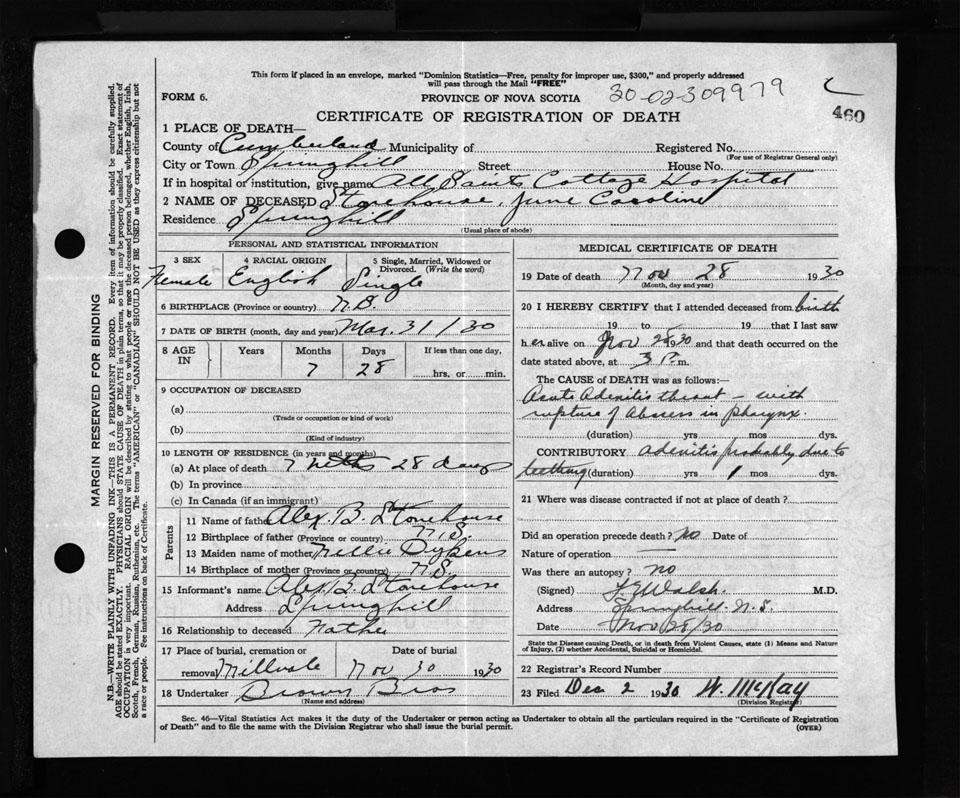 This form if placed in an envelope, marked "Dominion Statistics—Free, penalty for improper use, $300," and properly addressed
will pass through the Mail "FREE"
FORM 6.
PROVINCE OF NOVA SCOTIA
30-02-309979
460
CERTIFICATE OF REGISTRATION OF DEATH
1 PLACE OF DEATH—
County of Cumberland Municipality of Registered No.
(For use of Registrar General only)
City or Town Springhill Street House No.
If in hospital or institution, give name All Saints Cottage Hospital
2 NAME OF DECEASED Stonehouse, June Caroline
Residence Springhill
(Usual place of abode)
PERSONAL AND STATISTICAL INFORMATION
3 SEX 4 RACIAL ORIGIN 5 Single, Married, Widowed or
Divorced. (Write the word)
Female English Single
6 BIRTHPLACE (Province or country) N.B.
7 DATE OF BIRTH (month, day and year) Mar. 31/30
8 AGE IN Years Months Days If less than one day,
7 28 hrs. or min.
9 OCCUPATION OF DECEASED
(a)
(Trade or occupation or kind of work)
(b)
(Kind of industry)
10 LENGTH OF RESIDENCE (in years and months)
(a) At place of death 7 mths 28 days
(b) In province
(c) In Canada (if an immigrant)
Parents
11 Name of father Alex. B. Stonehouse
12 Birthplace of father (Province or country) N.S.
13 Maiden name of mother Nellie Dykens
14 Birthplace of mother (Province or country) N.S.
15 Informant's name Alex. B. Stonehouse
Address Springhill
16 Relationship to deceased Father
17 Place of burial, cremation or Date of burial
removal Millvale Nov 30 1930
18 Undertaker Brown Bros
(Name and address)
MEDICAL CERTIFICATE OF DEATH
19 Date of death Nov 28 1930
(Month, day and year)
20 I HEREBY CERTIFY that I attended deceased from birth
19 to 19 that I last saw
h er alive on Nov 28 1930 and that death occurred on the
date stated above, at 3 P. m.
The CAUSE OF DEATH was as follows:
Acute Adenitis throat — with
rupture of Abscess in pharynx.
(duration) yrs mos dys.
CONTRIBUTORY adenitis probably due to
teething (duration) yrs 1 mos dys.
21 Where was disease contracted if not at place of death?
Did an operation precede death? No Date of
Nature of operation —
Was there an autopsy? no
(Signed) Walsh. M.D.
Address Springhill. N.S.
Date Nov 28/30
State the Disease causing Death, or in death from Violent Causes, state (1) Means and Nature
of Injury, (2) whether Accidental, Suicidal or Homicidal.
22 Registrar's Record Number
23 Filed Dec 2 1930 W. McKay
(Division Registrar)
Sec. 46—Vital Statistics Act makes it the duty of the Undertaker or person acting as Undertaker to obtain all the particulars required in the "Certificate of Registration
of Death" and to file the same with the Division Registrar who shall issue the burial permit. (OVER)
MARGIN RESERVED FOR BINDING
N.B.—WRITE PLAINLY WITH UNFADING INK—THIS IS A PERMANENT RECORD. Every item of information should be carefully supplied.
AGE should be stated EXACTLY. PHYSICIANS should STATE CAUSE OF DEATH in plain terms, so that it may be properly classified. Exact statement of
OCCUPATION is very important. RACIAL ORIGIN will be described by stating to what people or race the deceased person belonged, whether English, Irish,
Scotch, French, German, Russian, Ruthenian, etc. The terms "AMERICAN" or "CANADIAN" SHOULD NOT BE USED as they express citizenship but not
a race or people. See instructions on back of Certificate.